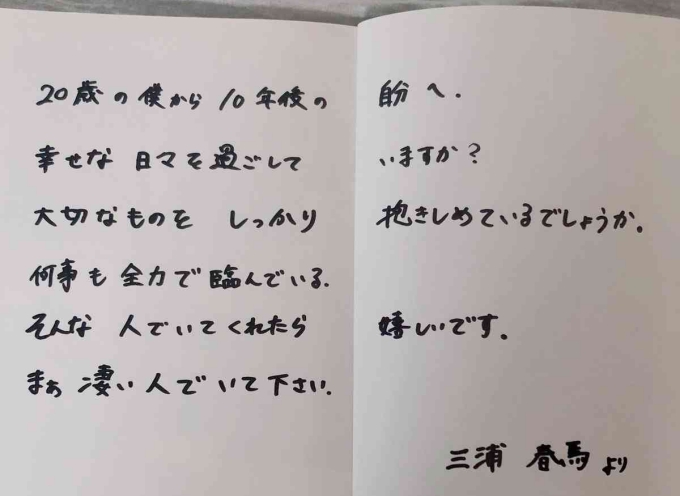 20歳の僕から 10年後の 自分へ.
幸せな 日々を過ごして いますか?
大切なものを しっかり 抱きしめているでしょうか。
何事も 全力で臨んでいる.
そんな 人でいてくれたら 嬉しいです。
まぁ 凄い人でいて下さい.
三浦 春馬 より